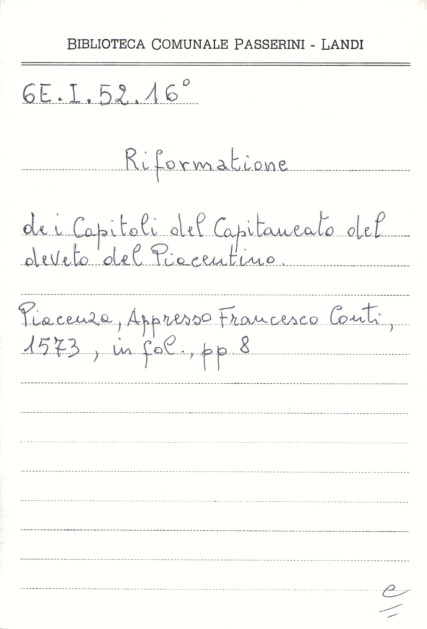 BIBLIOTECA COMUNALE PASSERINI - LANDI
6E.I.52.16°
Riformatione
dei Capitoli del Capitaneato del
deveto del Piacentino.
Piacenza, Appresso Francesco Conti,
1573, in fol., pp 8
e